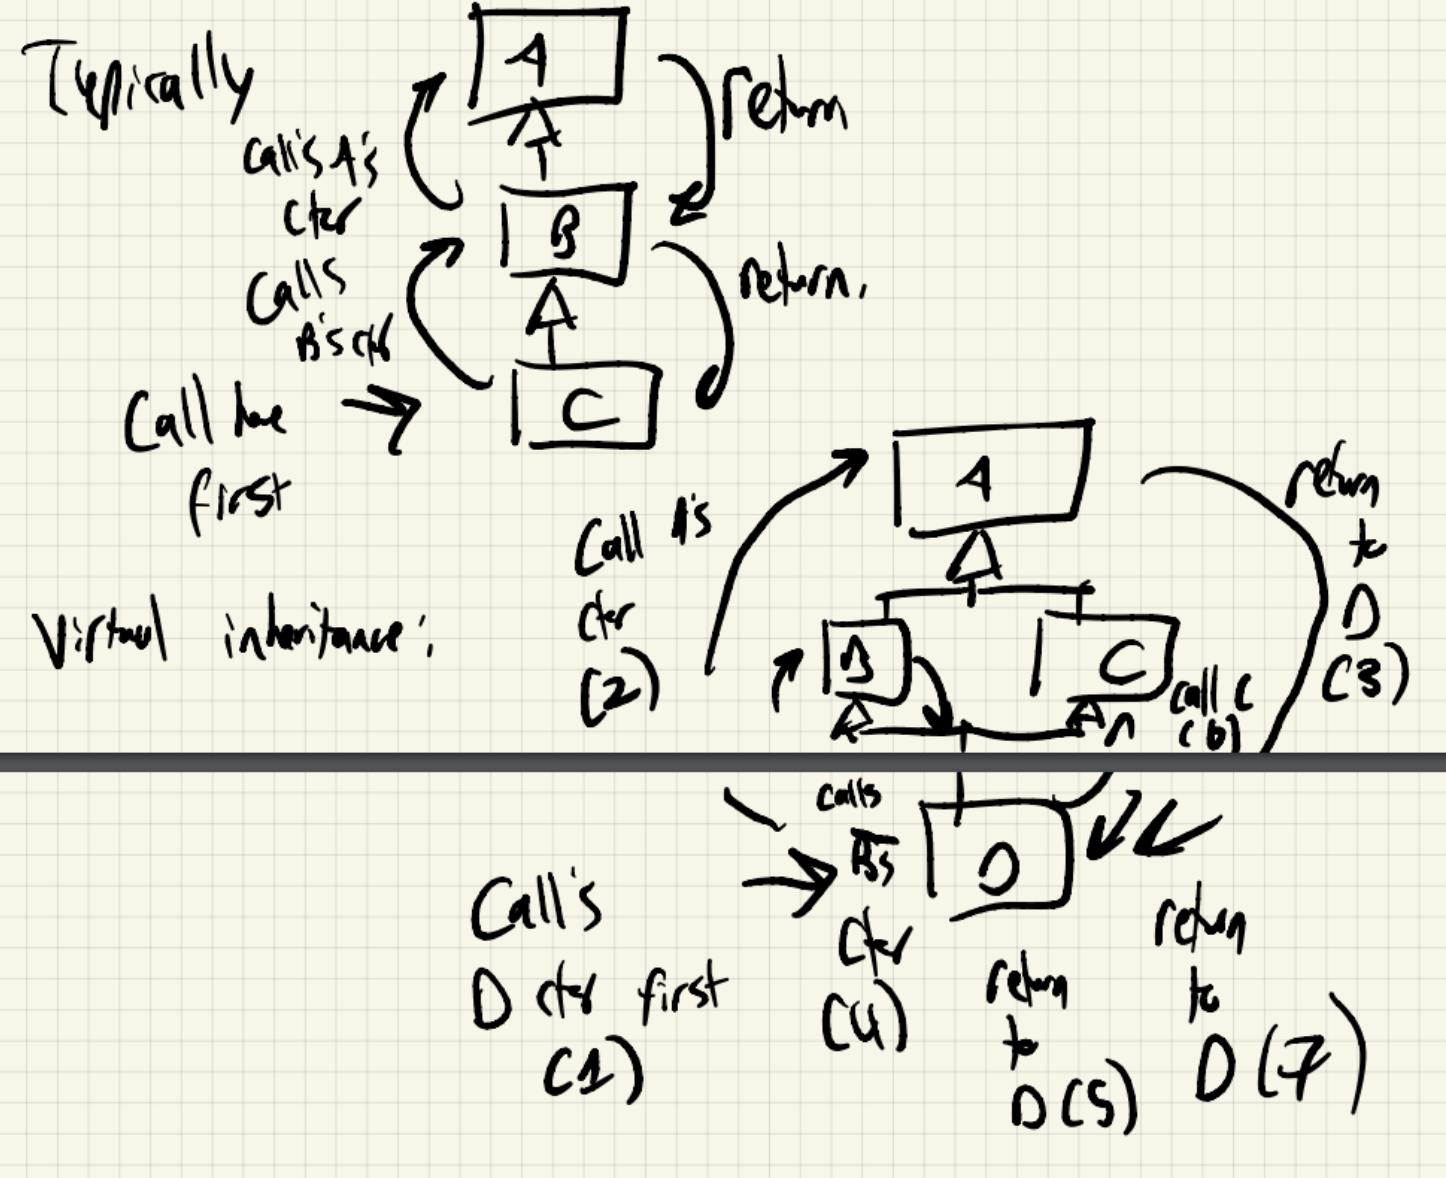 Typically
A
return
Call's A's
Cter
B
Calls
B's ctr
return.
C
Call here
first
A
Call A's
cter
(2)
return
to
D
(3)
Virtual inheritance:
B
C
call C
(6)
calls
B's
Cter
(4)
D
Call's
D cter first
(1)
return
to
D (5)
return
to
D (7)